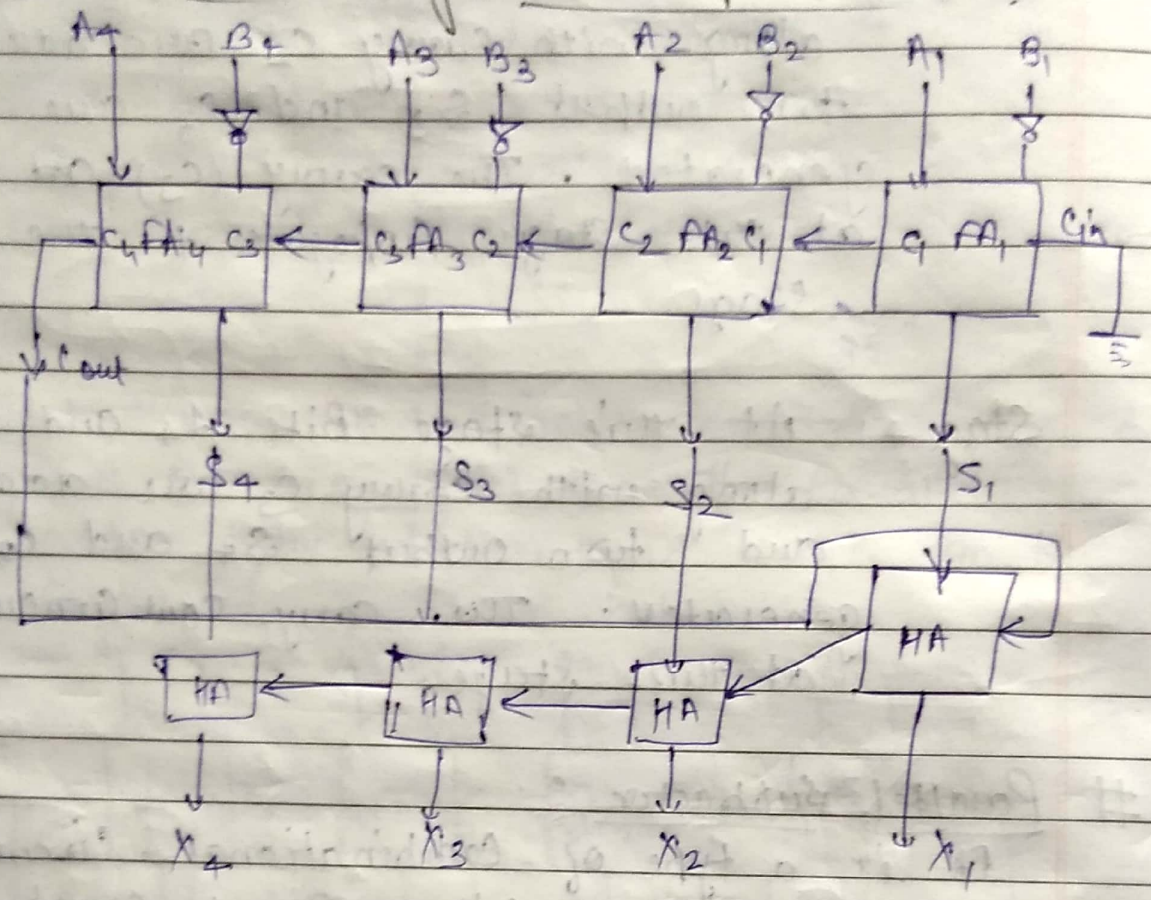 A4 B4 A3 B3 A2 B2 A1 B1
C4 FA4 C3 C3 FA3 C2 C2 FA2 C1 C1 FA1 Cin
Cout
S4 S3 S2 S1
HA
HA HA HA
X4 X3 X2 X1